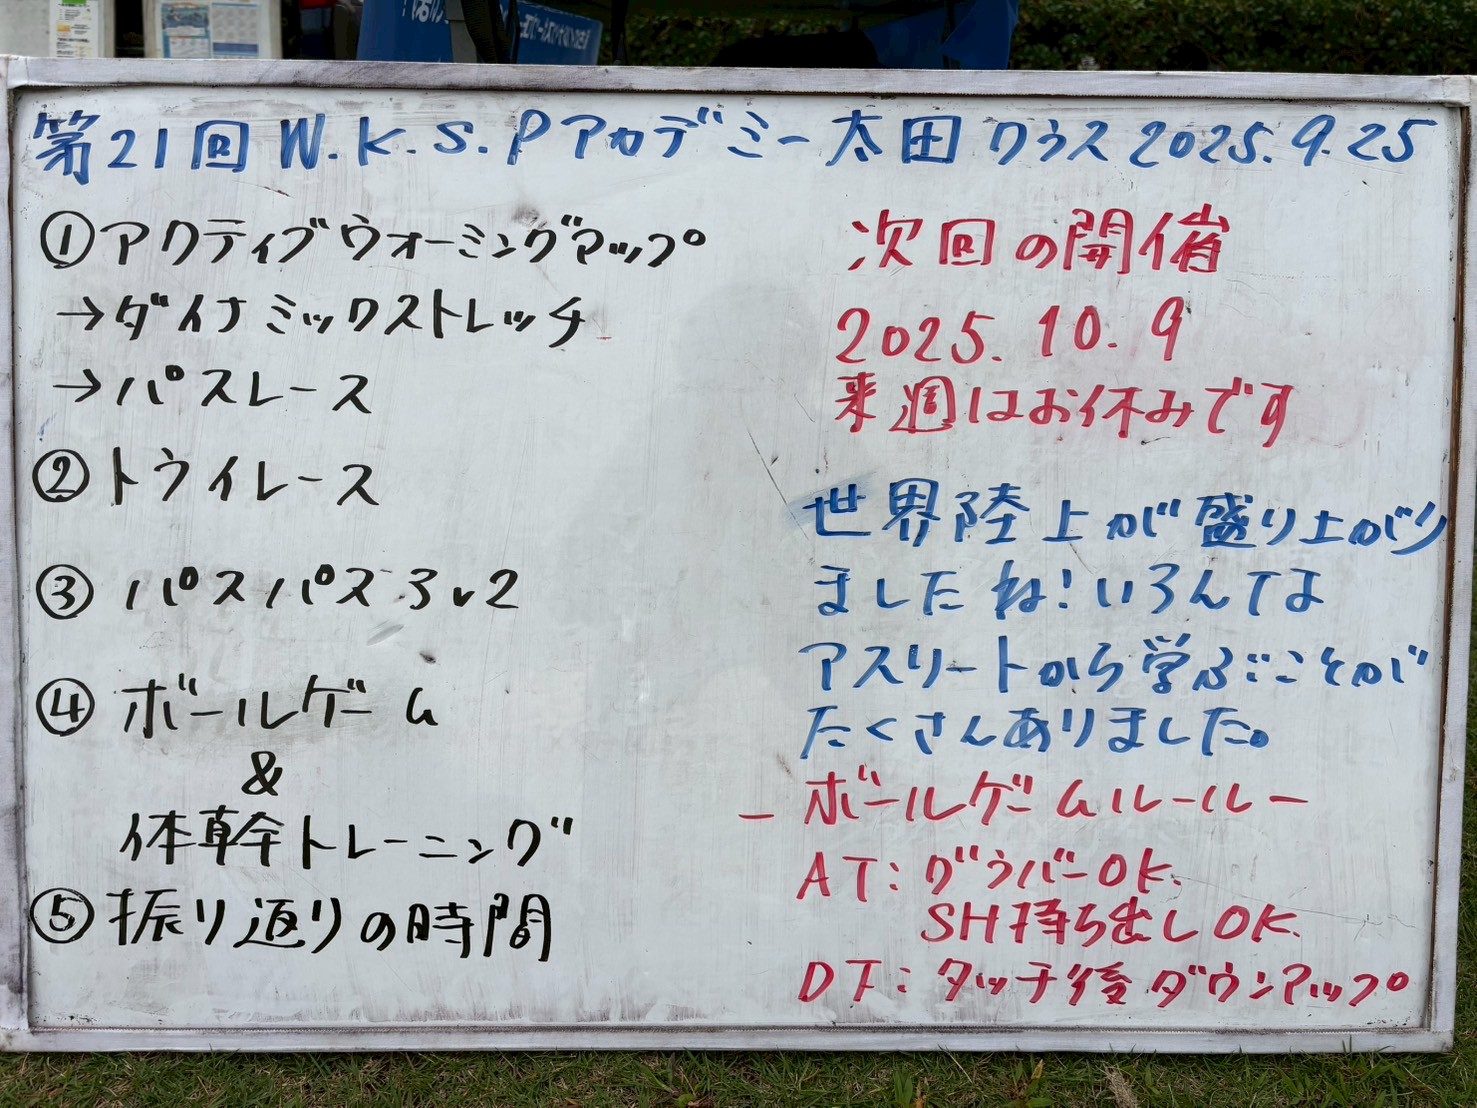 第21回 W.K.S.Pアカデミー太田クラス 2025.9.25
①アクティブウォーミングアップ
→ダイナミックストレッチ
→パスレース
②トライレース
③パスパス3v2
④ボールゲーム
&
体幹トレーニング
⑤振り返りの時間
次回の開催
2025.10.9
来週はお休みです
世界陸上が盛り上がり
ましたね!いろんな
アスリートから学ぶことが
たくさんありました。
ーボールゲームルールー
AT:グラバーOK.
SH持ち出しOK.
DF:タッチ後ダウンアップ